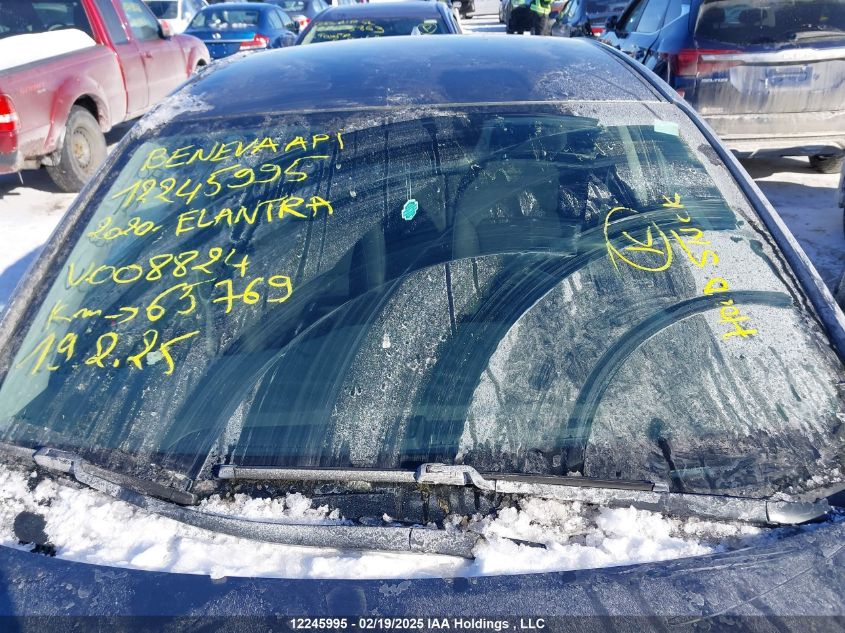 BENEVA API
12245995
2020. ELANTRA
V.008824
Km → 63769
19.2.25
K
12245995 - 02/19/2025 IAA Holdings , LLC